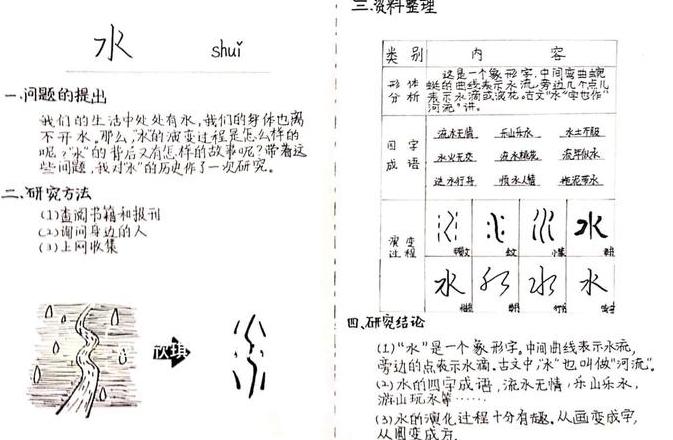 水 shuǐ
一.问题的提出
我们的生活中处处有水,我们的身体也离
不开水。那么,"水"的演变过程是怎么样的
呢?"水"的背后又有怎样的故事呢?带着这
些问题,我对"水"的历史作了一次研究。
二、研究方法
(1)查阅书籍和报刊
(2)询问身边的人
(3)上网收集
欣琪
三.资料整理
类别 内容
形体
分析
这是一个象形字,中间弯曲蜿
蜒的曲线表示水流,旁边几个点儿
表示水滴或浪花。古文"水"字也作"
河流"讲。
四字
成语
流水无情 乐山乐水 水土不服
水火无交 流水桃花 流年似水
逆水行舟 顺水人情 拖泥带水
演变
过程
水
水 水 水
四、研究结论
(1)"水"是一个象形字。中间曲线表示水流,
旁边的点表示水滴。古文中,"水"也叫做"河流"。
(2)水的四字成语,流水无情,乐山乐水,
游山玩水等……
(3)水的演化过程十分有趣。从画变成字,
从圆变成方.